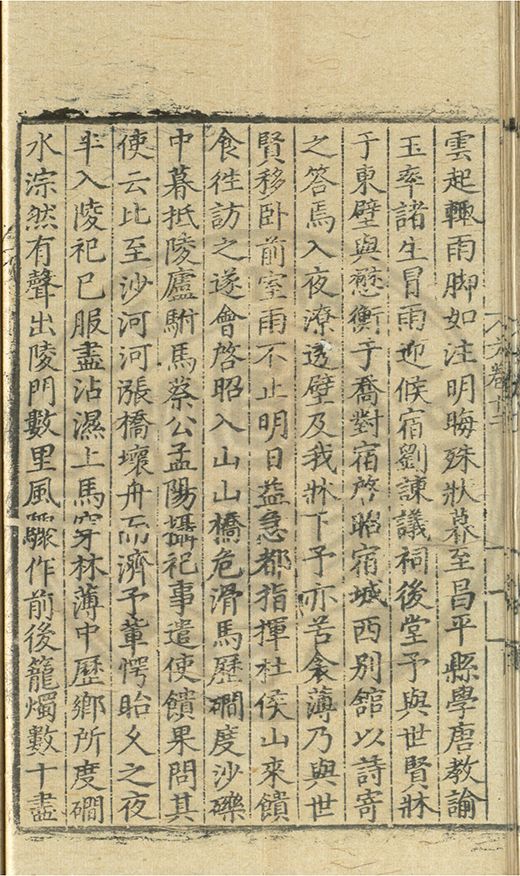 雲起輙雨脚如注明晦殊狀暮至昌平縣學唐教諭
玉率諸生冒雨迎候宿劉諫議祠後堂予與世賢牀
于東壁與懋衡于喬對宿啓昭宿城西别舘以詩寄
之答焉入夜潦透壁及我牀下予亦苦衾薄乃與世
賢移卧前室雨不止明日益急都指揮杜侯山來饋
食徃訪之遂會啓昭入山山橋危滑馬歷磵度沙礫
中暮抵陵廬駙馬蔡公孟陽攝祀事遣使饋果問其
使云比至沙河河漲橋壞舟而濟予軰愕眙久之夜
半入陵祀已服盡沾濕上馬穿林薄中歷鄉所度磵
水淙然有聲出陵門數里風驟作前後籠燭數十盡